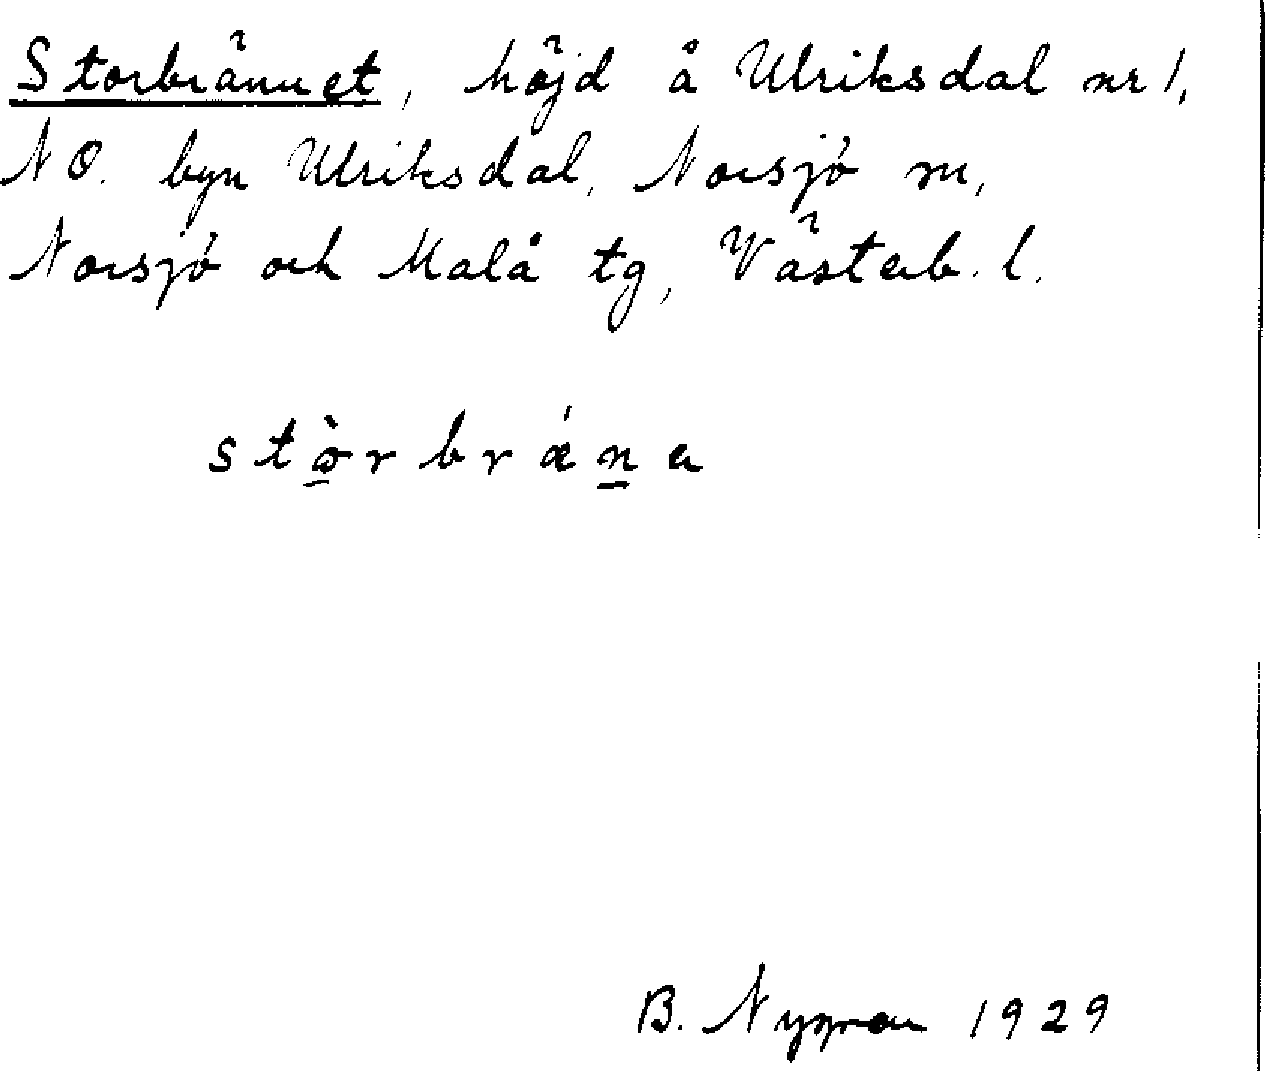 Storbrännet, höjd å Ulriksdal nr 1,
NO. byn Ulriksdal, Norsjö sn,
Norsjö och Malå tg, Västerb. l.
stò̱rbrǽṉa
B. Nygren 1929